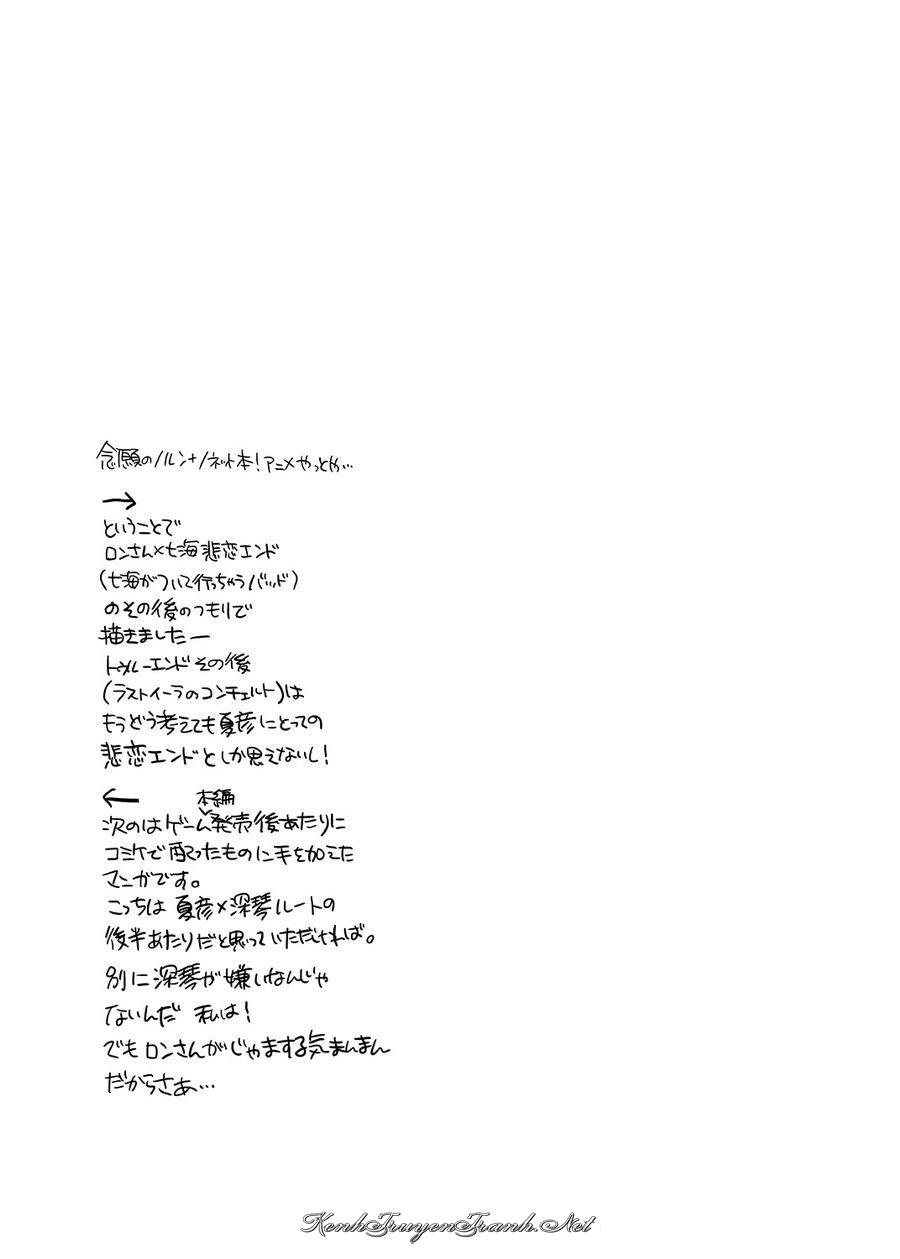 念願のノルン+ノネット本!アニメやっとか…
→
ということで
ロンさん×七海 悲恋エンド
(七海がついて行っちゃうバッド)
のその後のつもりで
描きましたー
トゥルーエンドその後
(ラストイーラのコンチェルト)は
もうどう考えても夏彦にとっての
悲恋エンドとしか思えないし!
←
次のはゲーム本編発売後あたりに
コミケで配ったものに手を加えた
マンガです。
こっちは 夏彦×深琴ルートの
後半あたりだと思っていただければ。
別に深琴が嫌いなんじゃ
ないんだ 私は!
でもロンさんがじゃまする気まんまん
だからさぁ…
KenhTruyenTranh.Net